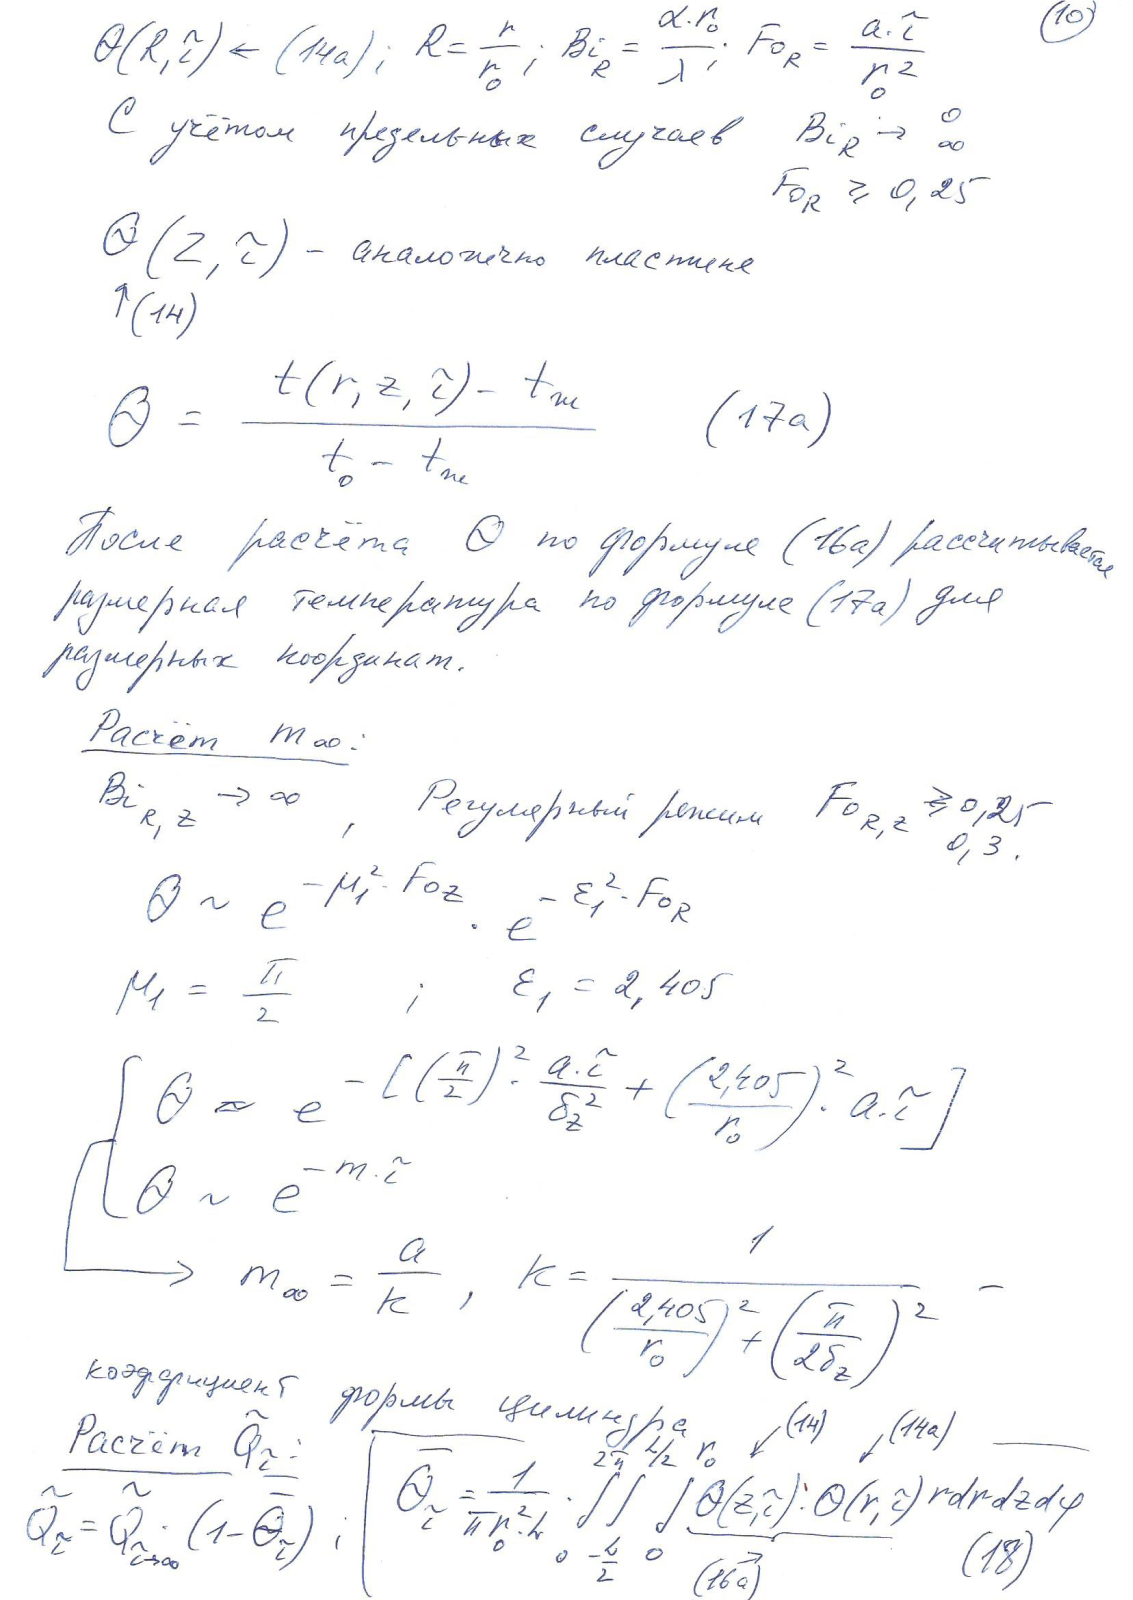 (10)
Θ(R, τ̃) ← (14а); R = r/r₀; Bi_R = α·r₀/λ; Fo_R = a·τ̃/r₀²
С учётом предельных случаев Bi_R → 0 ∞
Fo_R ≥ 0,25
Θ(Z, τ̃) – аналогично пластине
↑(14)
Θ = (t(r, z, τ̃) – t_ж)/(t₀ – t_ж) (17а)
После расчёта Θ по формуле (16а) рассчитывается
размерная температура по формуле (17а) для
размерных координат.
Расчёт m∞:
Bi_R,Z → ∞, Регулярный режим Fo_R,Z ≥ 0,25
0,3.
Θ ~ e^(–μ₁²·Fo_Z) · e^(–ε₁²·Fo_R)
μ₁ = π/2 ; ε₁ = 2,405
Θ ≈ e^(–[(π/2)²·a·τ̃/δ_z² + (2,405/r₀)²·a·τ̃])
Θ ~ e^(–m·τ̃)
→ m∞ = a/k, k = 1/((2,405/r₀)² + (π/2δ_z)²) –
коэффициент формы цилиндра
Расчёт Q̃_τ̃:
Q̃_τ̃ = Q̃_τ̃→∞ · (1–Θ̄_τ̃); Θ̄_τ̃ = 1/(π r₀²·h) · ∫₀^2π ∫_(–h/2)^(h/2) ∫₀^r₀ Θ(z, τ̃)·Θ(r, τ̃) r dr dz dφ
(14) (14а)
(16а) (18)